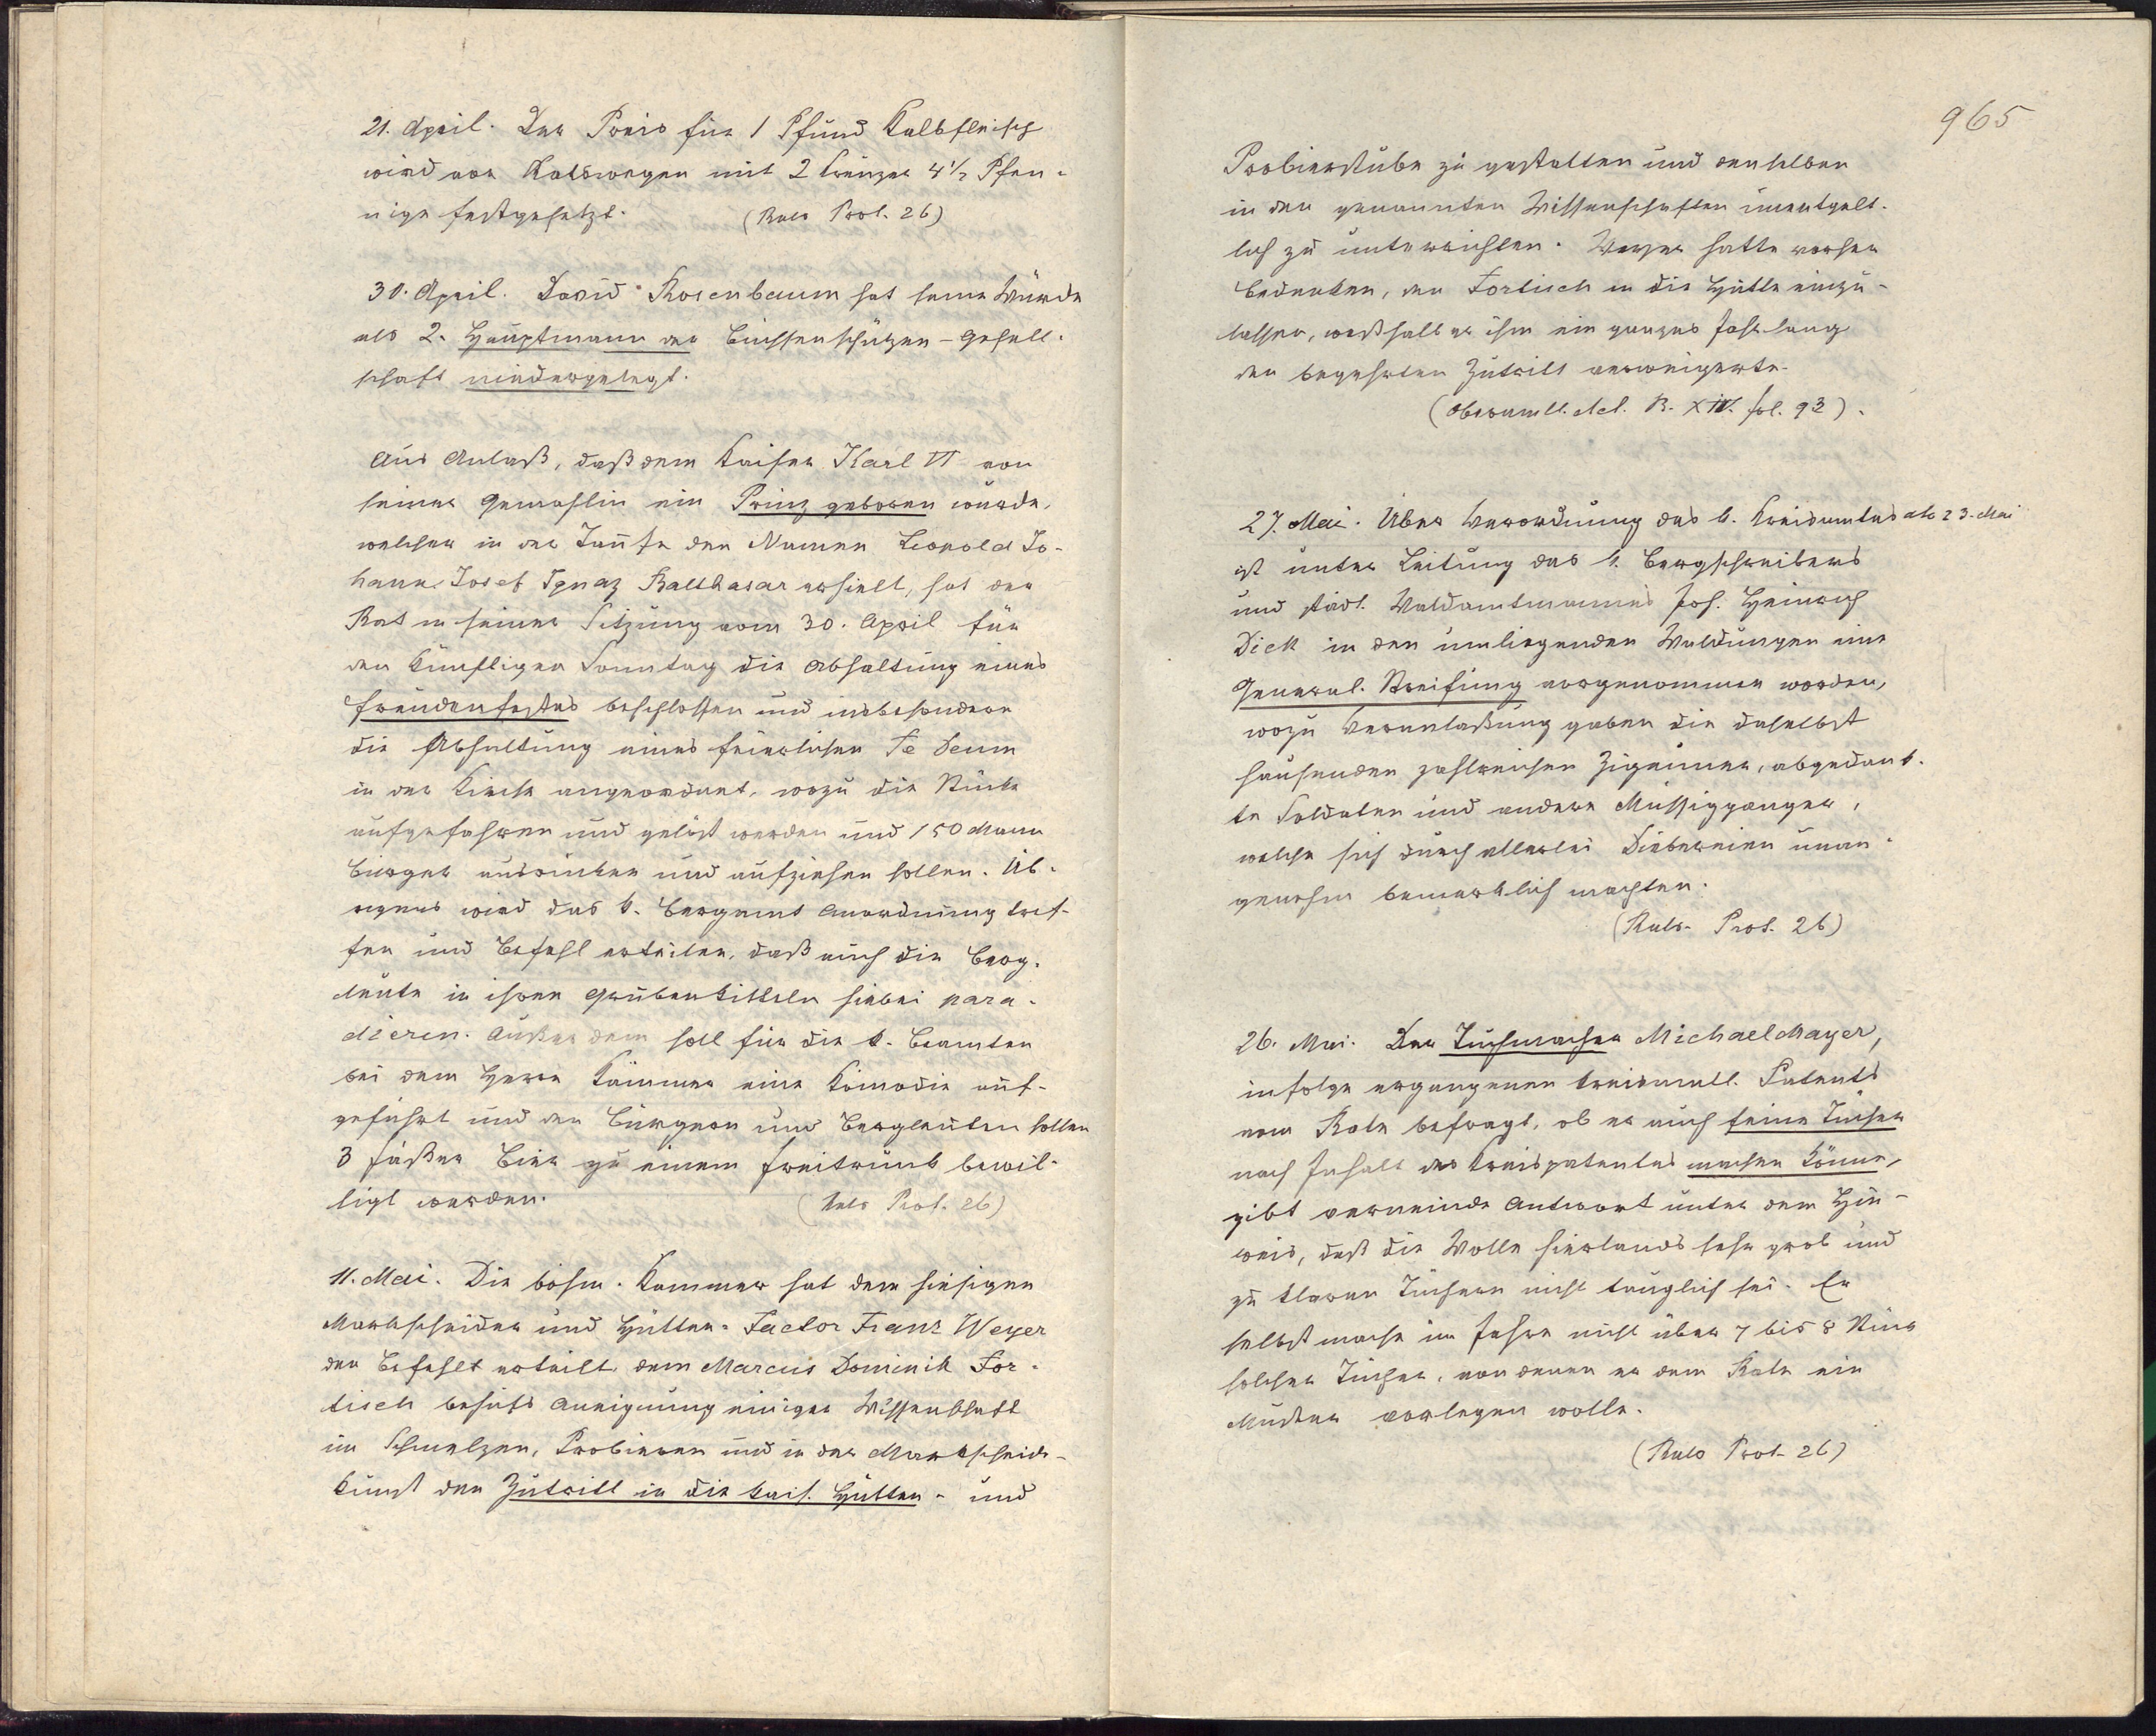 21. April. Der Preis für 1 Pfund Kalbfleisch
wird von Ratswegen mit 2 Kreuzer 4 1/2 Pfen-
nige festgesetzt. (Rats Prot. 26)
30. April. David Rosenbaum hat seine Würde
als 2. Hauptmann der Büchsenschützen-Gesell-
schaft niedergelegt.
Aus Anlaß, daß dem Kaiser Karl VI von
seiner Gemahlin ein Prinz geboren wurde,
welcher in der Taufe den Namen Leopold Jo-
hann Josef Ignaz Balthasar erhielt, hat der
Rat in seiner Sitzung vom 30. April für
den künftigen Sonntag die Abhaltung eines
Freudenfestes beschlossen und insbesondere
die Abhaltung eines feierlichen Te Deum
in der Kirche angeordnet, wozu die Stücke
aufgefahren und gelöst werden und 150 Mann
Bürger ausrücken und aufziehen sollen. Üb-
rigens wird das k. Bergamt Anordnung tref-
fen und Befehl erteilen, daß auch die Berg-
leute in ihren Grubenkitteln hiebei para-
dieren. Außerdem soll für die k. Beamten
bei dem Herrn Kämmer eine Komödie auf-
geführt und den Bürgern und Bergleuten sollen
3 Fäßer Bier zu einem Freitrunk bewil-
ligt werden. (Rats Prot. 26)
11. Mai. Die böhm. Kammer hat dem hiesigen
Markscheider und Hütten-Factor Franz Weyer
den Befehl erteilt dem Marcus Dominik For-
tisch behufs Aneignung einiger Wissenschaft
im Schmelzen, Probieren und in der Markscheide-
kunst den Zutritt in die kais. Hütten- und
965
Probierstube zu gestatten und denselben
in den genannten Wissenschaften unentgelt-
lich zu unterrichten. Weyer hatte vorher
Bedenken, den Fortisch in die Hütte einzu-
lassen, weßhalb er ihm ein ganzes Jahr lang
den begehrten Zutritt verweigerte.
(Oberamtl. Act. B. XIV. fol. 93).
27. Mai. Über Verordnung des k. Kreisamtes dto 23. Mai
ist unter Leitung des k. Bergschreibers
und städt. Waldamtmannes Joh. Heinrich
Dick in den umliegenden Waldungen eine
General-Streifung vorgenommen worden,
wozu Veranlaßung gaben die daselbst
hausenden zahlreichen Zigeuner, abgedank-
te Soldaten und andere Müssiggänger,
welche sich durch allerlei Diebereien unan-
genehm bemerklich machten.
(Rats- Prot. 26)
26. Mai. Der Tuchmacher Michael Mayer,
infolge ergangenen kreisamtl. Patents
vom Rate befragt, ob er auch feine Tücher
nach Inhalt des Kreispatentes machen könne,
gibt verneinde Antwort unter dem Hin-
weis, daß die Wolle hierlands sehr grob und
zu klaren Tüchern nicht tauglich sei. Er
selbst mache im Jahre nicht über 7 bis 8 Stück
solcher Tücher, von denen er dem Rate ein
Muster vorlegen wolle.
(Rats Prot. 26)